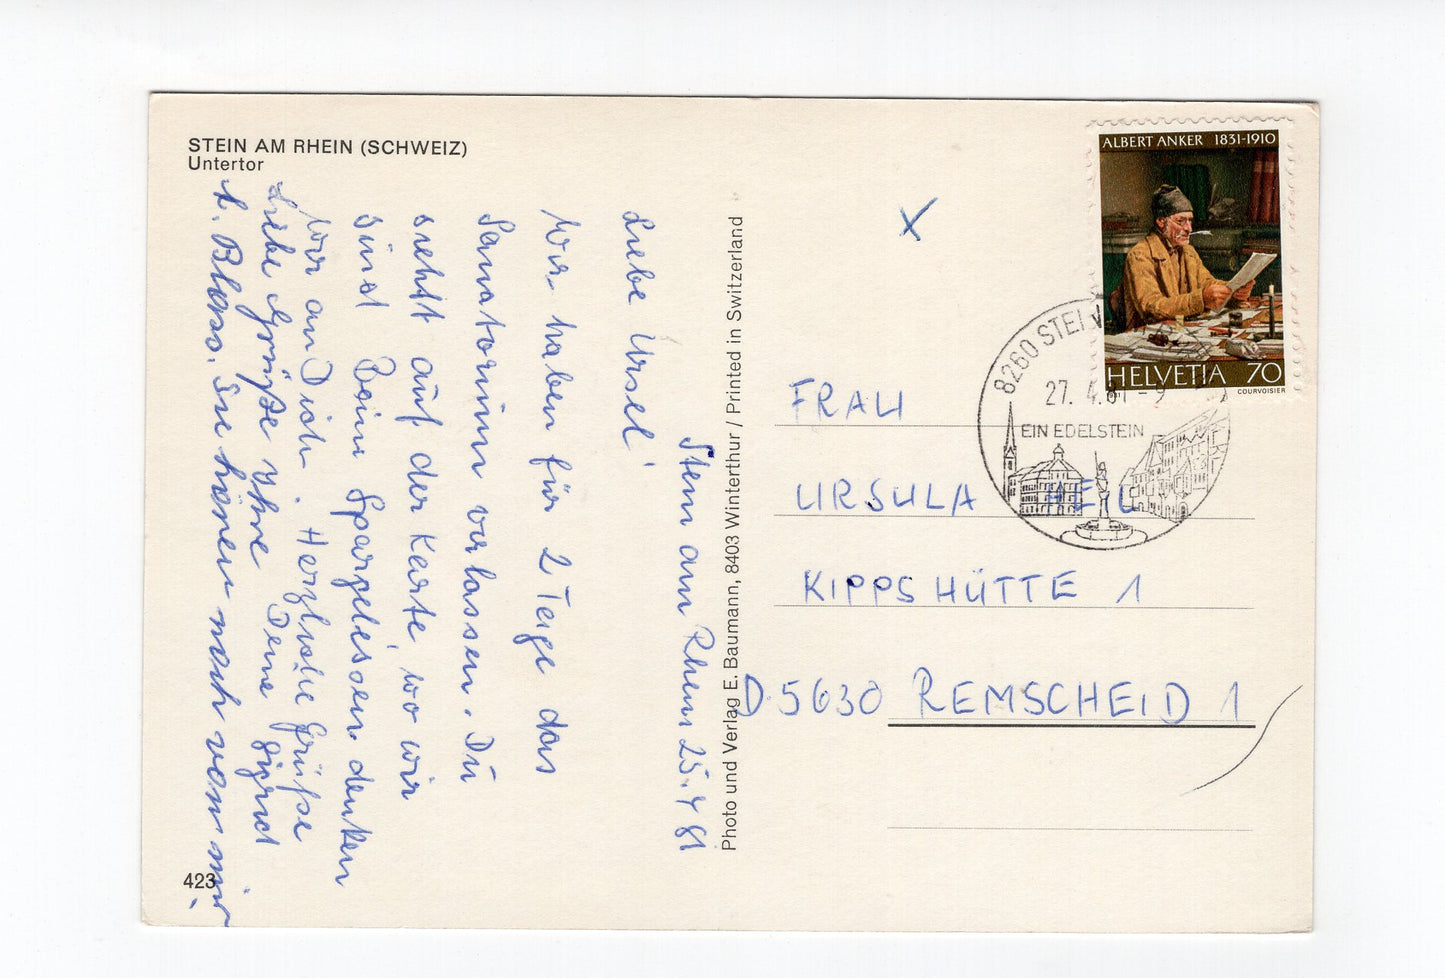 STEIN AM RHEIN (SCHWEIZ)
Untertor
Stein am Rhein 25.4 81
Liebe Ursel!
Wir haben für 2 Tage das
Sanatorium verlassen. Du
siehst auf der Karte, wo wir
sind. Beim Spargelessen denken
wir an Dich. Herzliche Grüße
Liebe Grüße Ihre Deine Sigrid
L. Blass. Sie hören noch von mir.
423
Photo und Verlag E. Baumann, 8403 Winterthur / Printed in Switzerland
X
ALBERT ANKER 1831-1910
HELVETIA 70
COURVOISIER
8260 STEIN
27. 4.81-9
EIN EDELSTEIN
FRAU
URSULA HEIL
KIPPSHÜTTE 1
D 5630 REMSCHEID 1